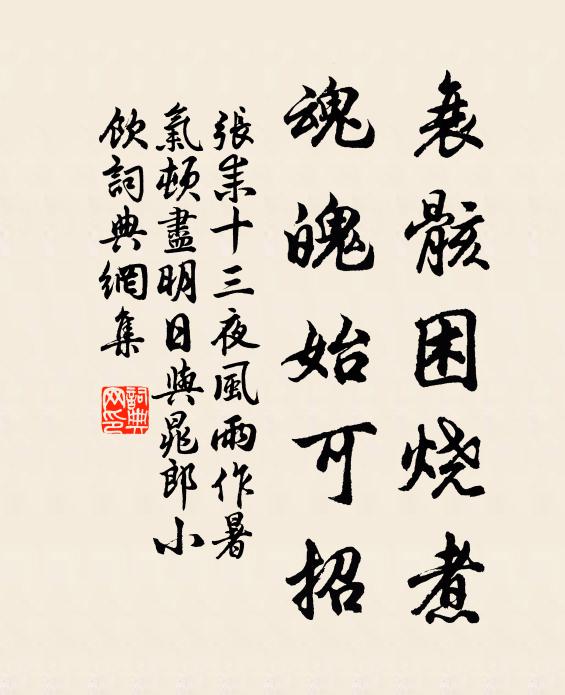 衰骸困烧煮
魂魄始可招
張耒十三夜風雨作暑
氣頓盡明日與晁郎小
飲詞典網集
詞典
网印